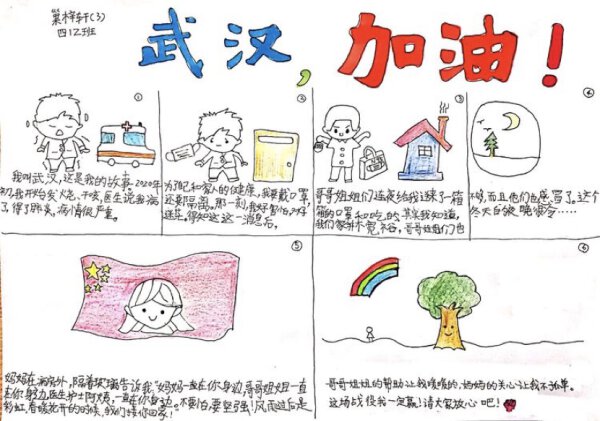 巢梓轩(3)
四12班
武汉,加油!
①
我叫武汉,这是我的故事。2020年
初,我开始发烧、干咳,医生说我病
了,得了肺炎,病情很严重。
②
为自己和家人的健康,我要戴口罩,
还要隔离。那一刻,我好害怕,又好
迷茫。得知这一消息后,
③
哥哥姐姐们连夜给我送来了一箱
箱的口罩和吃的,其实我知道,
我们家并不宽裕,哥哥姐姐们也
④
不够,而且他们也感冒了。这个
冬天的夜晚很冷……
⑤
妈妈在病房外,隔着玻璃告诉我:“妈妈一直在你身边,哥哥姐姐一直
在你身边,医生护士阿姨,一直在你身边。不要怕,要坚强!风雨过后是
彩虹,春暖花开的时候,我们接你回家!
⑥
哥哥姐姐的帮助让我暖暖的,妈妈的关心让我不孤单。
这场战役我一定赢!请大家放心吧!